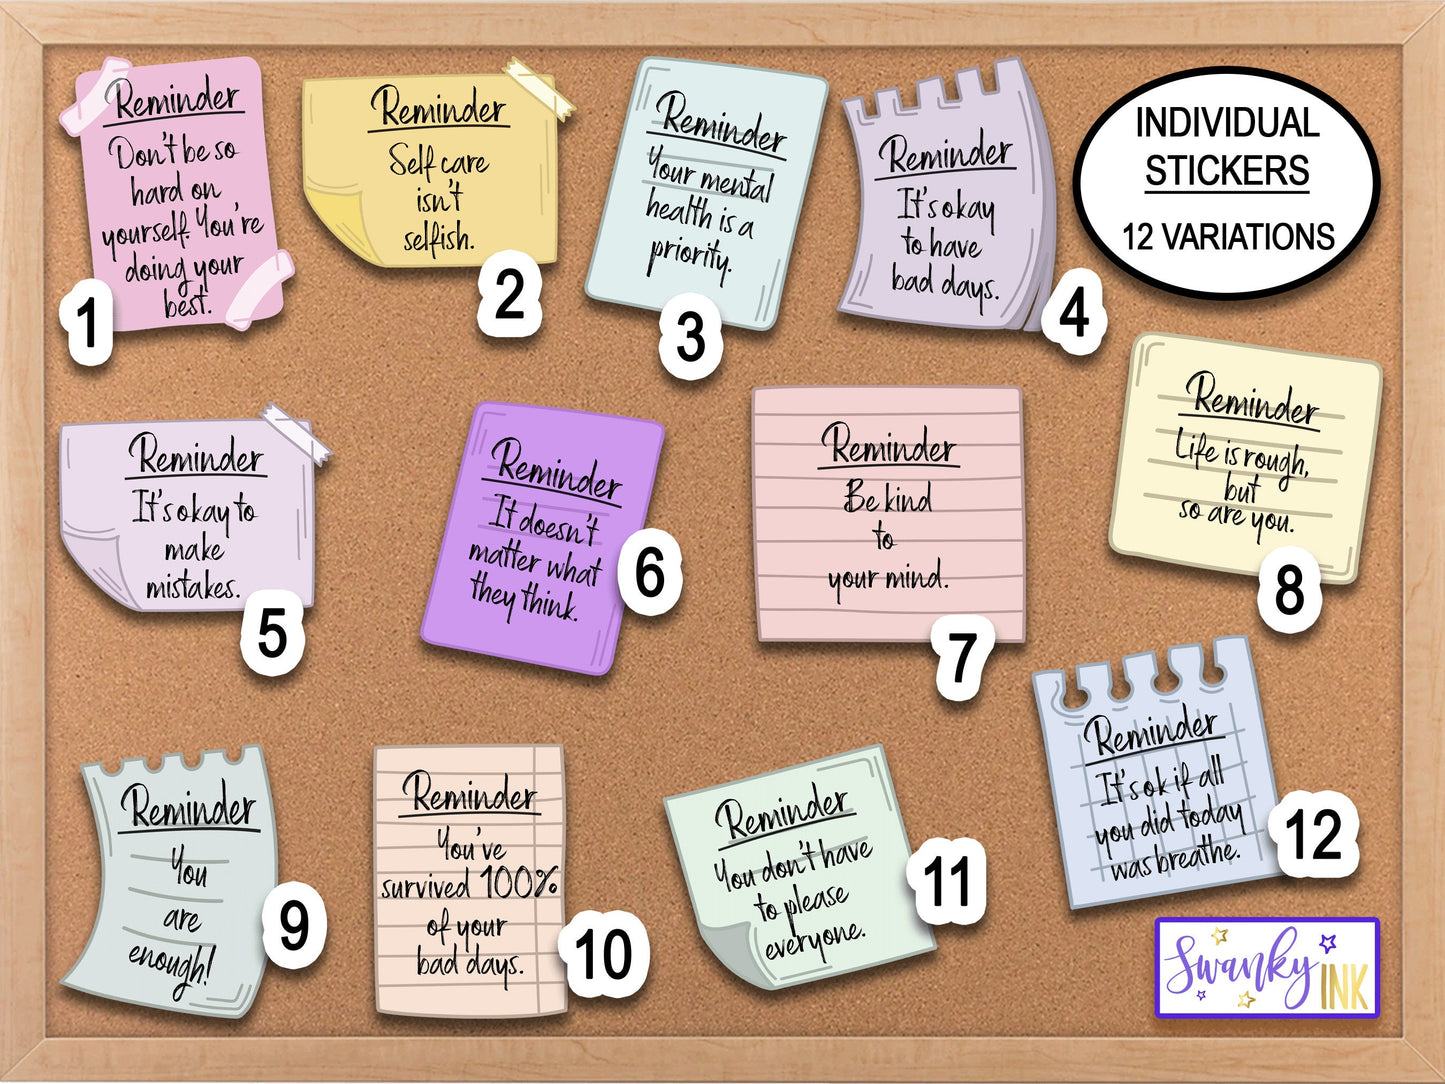 Reminder
Don't be so
hard on
yourself. You're
doing your
best.
1
Reminder
Self care
isn't
selfish.
2
Reminder
Your mental
health is a
priority.
3
Reminder
It's okay
to have
bad days.
4
INDIVIDUAL
STICKERS
12 VARIATIONS
Reminder
It's okay to
make
mistakes.
5
Reminder
It doesn't
matter what
they think.
6
Reminder
Be kind
to
your mind.
7
Reminder
Life is rough,
but
so are you.
8
Reminder
You
are
enough!
9
Reminder
You've
survived 100%
of your
bad days.
10
Reminder
You don't have
to please
everyone.
11
Reminder
It's ok if all
you did today
was breathe.
12
Swanky
INK